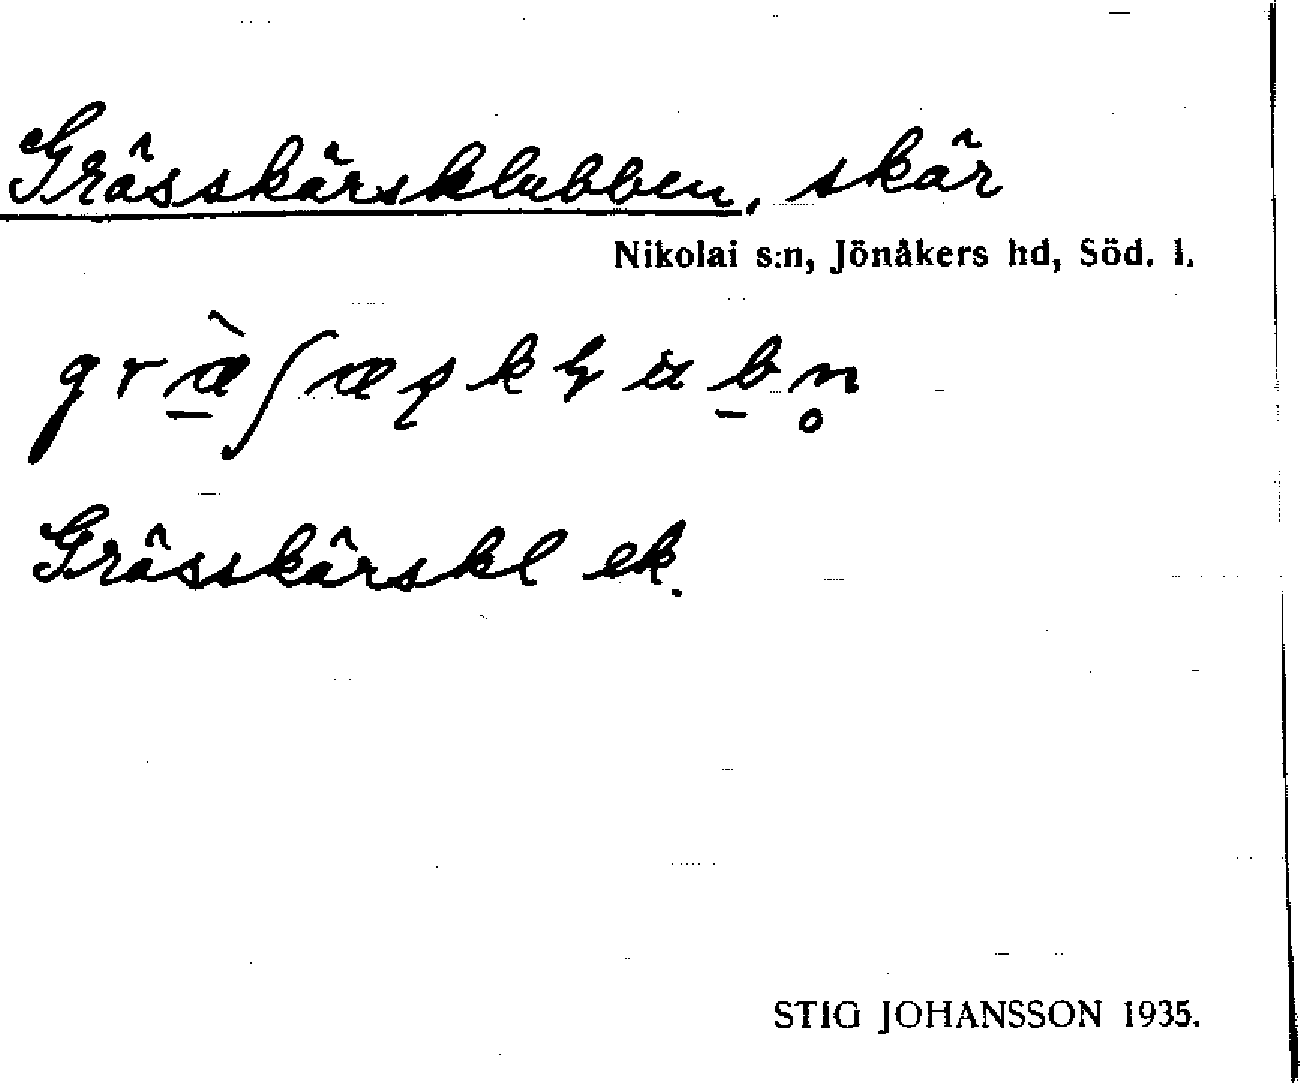 Grässkärsklubben, skär
Nikolai s:n, Jönåkers hd, Söd. l.
Grässkärskl ek.
STIG JOHANSSON 1935.